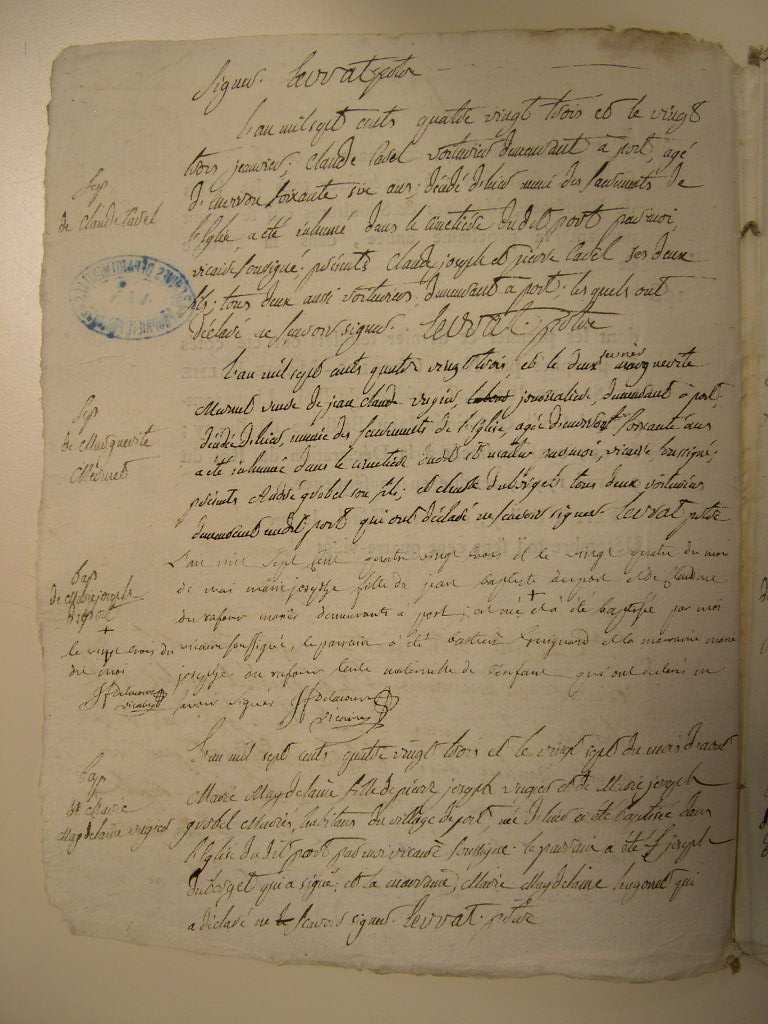 signer. Levrat ptre
L'an mil sept cents quatre vingt trois et le vingt
trois janvier; Claude Cavel voiturier demeurant à port, agé
d'environ soixante six ans; décédé d'hier muni des sacrements de
Sep
l'Eglise a été inhumé dans le cimetière dudit port par moi,
de Claude Cavel
vicaire soussigné. présents Claude joseph et pierre Cavel ses deux
fils; tous deux aussi voituriers, demeurant à port. lesquels ont
déclaré ne scavoir signer. Levrat. ptre
L'an mil sept cents quatre vingt trois, et le deux fevrier marguerite
veuve de jean claude journalier, demeurant à port,
Sep
décédé d'hier, munie des sacrements de l'Eglise, agée d'environ soixante ans
de Marguerite
a été inhumée dans le cimetière dudit par moi, vicaire soussigné;
présents André son fils; et tous deux voituriers
demeurant audit port qui ont déclaré ne scavoir signer Levrat ptre
L'an mil sept cent quatre vingt trois et le vingt quatre du moi
Bap
de mai marie josephe fille de jean baptiste et de Claudine
de Marie joseph
du rafour mariés demeurants a port; est née + et a été baptisée par moi
+
le vingt trois du
vicaire soussigné, le parrain a été et la marraine marie
du moi
josephe du rafour tente maternelle de l'enfant qui ont declaré ne
Jf Delacour
vicaire
savoir signer Jf Delacour
vicaire
L'an mil sept cents quatre vingt trois et le vingt sept du mois d'avril
Bap
Marie Magdelaine fille de pierre joseph et de Marie joseph
de Marie
Mariés, habitans du village de port, née d'hier a été baptisée dans
Magdelaine
l'Eglise dudit port par moi vicaire soussigné. le parrain a été joseph
qui a signé; et la marraine; Marie Magdelaine hugonet qui
a déclaré ne scavoir signer. Levrat. ptre